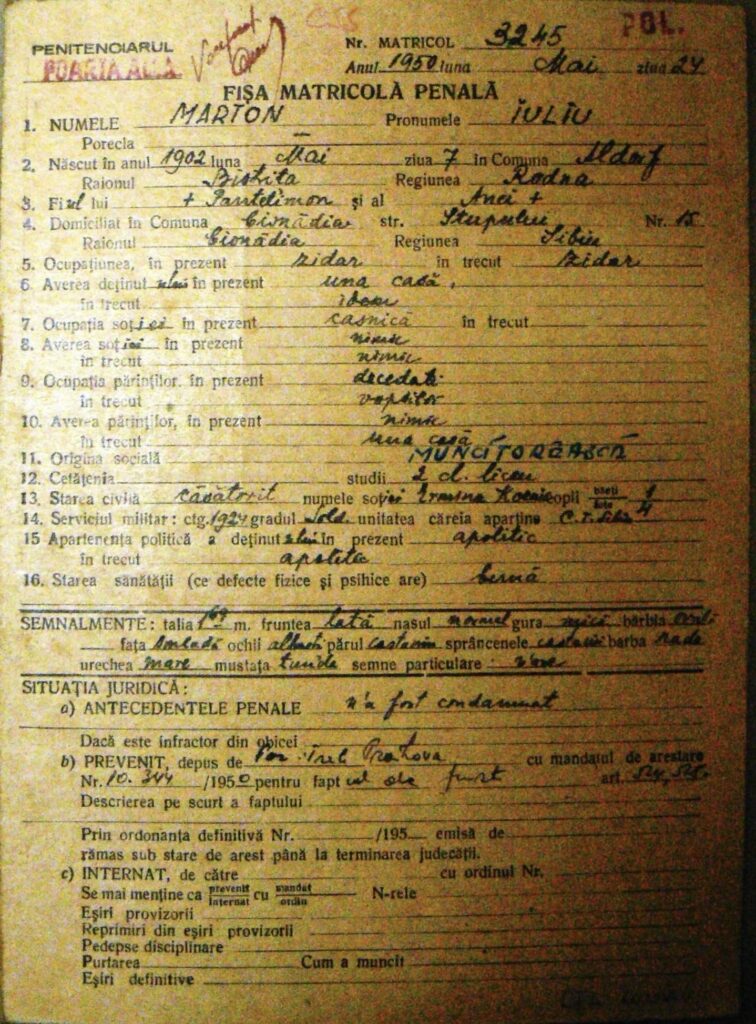 PENITENCIARUL
POARTA ALBĂ
POL.
Nr. MATRICOL 3245
Anul 1950 luna Mai ziua 24
FIȘA MATRICOLĂ PENALĂ
1. NUMELE MARTON Pronumele IULIU
Porecla
2. Născut în anul 1902 luna Mai ziua 7 în Comuna Aldorf
Raionul Bistrita Regiunea Rodna
3. Fiul lui + Pantelimon și al Anei +
4. Domiciliat în Comuna Cisnădia str. Stupului Nr. 15
Raionul Cisnădia Regiunea Sibiu
5. Ocupațiunea, în prezent zidar în trecut zidar
6. Averea deținutului în prezent una casă
în trecut idem
7. Ocupația soției în prezent casnică în trecut
8. Averea soției în prezent nimic
în trecut nimic
9. Ocupația părinților, în prezent decedati
în trecut
10. Averea părinților, în prezent nimic
în trecut una casă
11. Origina socială MUNCITOREASCĂ
12. Cetățenia studii 2 cl. liceu
13. Starea civilă căsătorit numele soției copii 1
14. Serviciul militar: ctg. 1924 gradul Sold. unitatea căreia aparține C. T. Sibiu 4
15 Apartenența politică a deținutului în prezent apolitic
în trecut apolitic
16. Starea sănătății (ce defecte fizice și psihice are) bună
SEMNALMENTE: talia 1 69 m. fruntea lată nasul normal gura mică bărbia
fața ochii albastri părul castaniu sprâncenele castanii barba rada
urechea mare mustața tunda semne particulare:
SITUAȚIA JURIDICĂ:
a) ANTECEDENTELE PENALE n'a fost condamnat
Dacă este infractor din obicei
b) PREVENIT, depus de Trib Prahova cu mandatul de arestare
Nr. 10.344 /1950 pentru faptul de furt art.
Descrierea pe scurt a faptului
Prin ordonanța definitivă Nr. /195 emisă de
rămas sub stare de arest până la terminarea judecății.
c) INTERNAT, de către cu ordinul Nr.
Se mai menține ca prevenit internat cu mandat ordin N-rele
Eșiri provizorii
Reprimiri din eșiri provizorii
Pedepse disciplinare
Purtarea Cum a muncit
Eșiri definitive